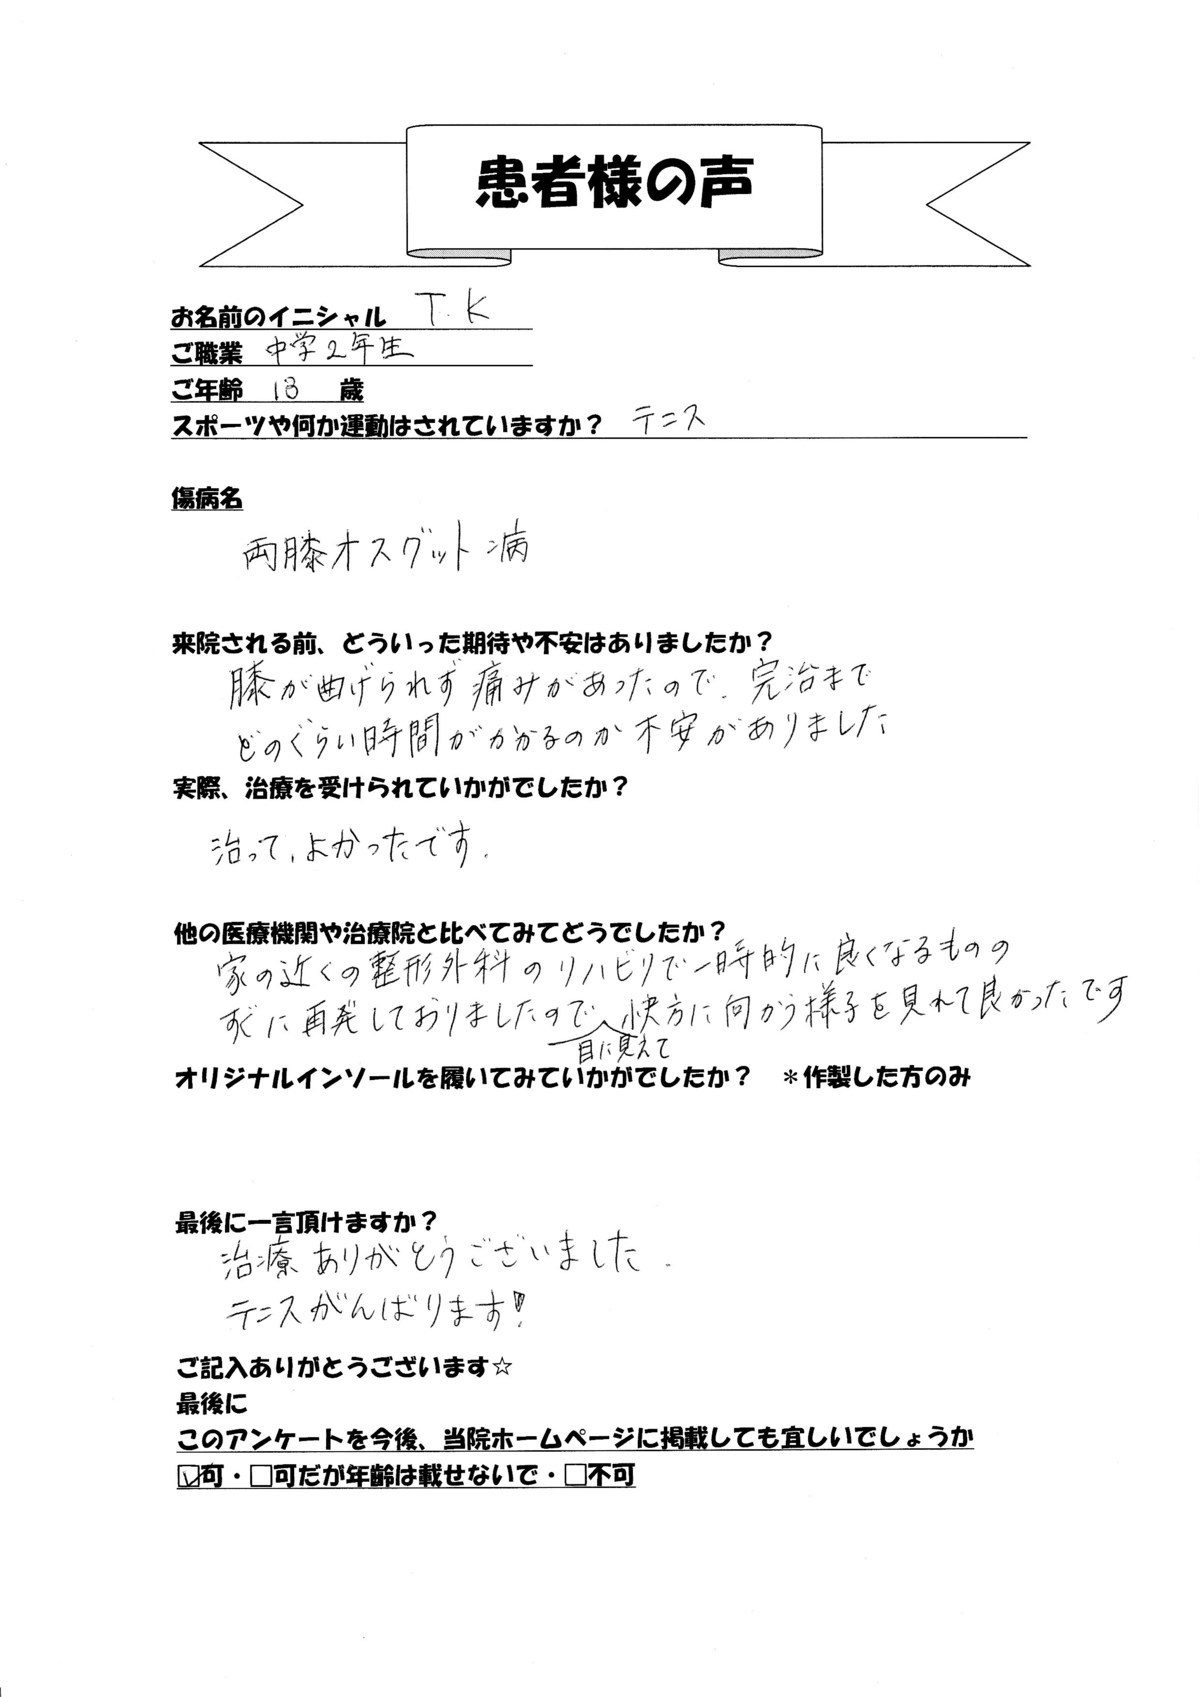 患者様の声
お名前のイニシャル T.K
ご職業 中学2年生
ご年齢 13 歳
スポーツや何か運動はされていますか? テニス
傷病名
両膝オスグット病
来院される前、どういった期待や不安はありましたか?
膝が曲げられず痛みがあったので、完治まで
どのぐらい時間がかかるのか不安がありました
実際、治療を受けられていかがでしたか?
治って、よかったです.
他の医療機関や治療院と比べてみてどうでしたか?
家の近くの整形外科のリハビリで一時的に良くなるものの
すぐに再発しておりましたので、快方に向かう様子を見れて良かったです
目に見えて
オリジナルインソールを履いてみていかがでしたか? *作製した方のみ
最後に一言頂けますか?
治療ありがとうございました.
テニスがんばります!
ご記入ありがとうございます☆
最後に
このアンケートを今後、当院ホームページに掲載しても宜しいでしょうか
☑可・□可だが年齢は載せないで・□不可